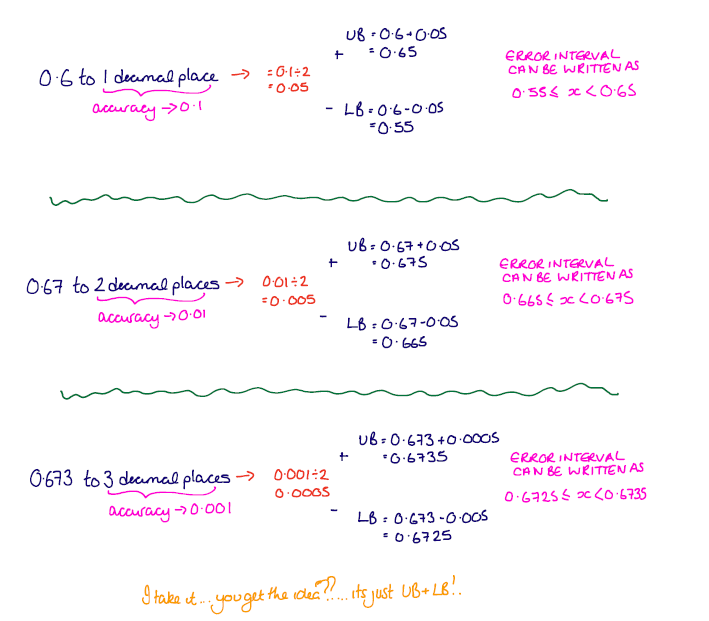 0.6 to 1 decimal place → = 0.1÷2
= 0.05
accuracy → 0.1
UB = 0.6+0.05
+ = 0.65
- LB = 0.6-0.05
= 0.55
ERROR INTERVAL
CAN BE WRITTEN AS
0.55 ≤ x < 0.65
0.67 to 2 decimal places → 0.01÷2
= 0.005
accuracy → 0.01
UB = 0.67+0.05
+ = 0.675
- LB = 0.67-0.05
= 0.665
ERROR INTERVAL
CAN BE WRITTEN AS
0.665 ≤ x < 0.675
0.673 to 3 decimal places → 0.001÷2
0.0005
accuracy → 0.001
UB = 0.673+0.0005
+ = 0.6735
- LB = 0.673-0.005
= 0.6725
ERROR INTERVAL
CAN BE WRITTEN AS
0.6725 ≤ x < 0.6735
I take it... you get the idea??.... its just UB+LB!.